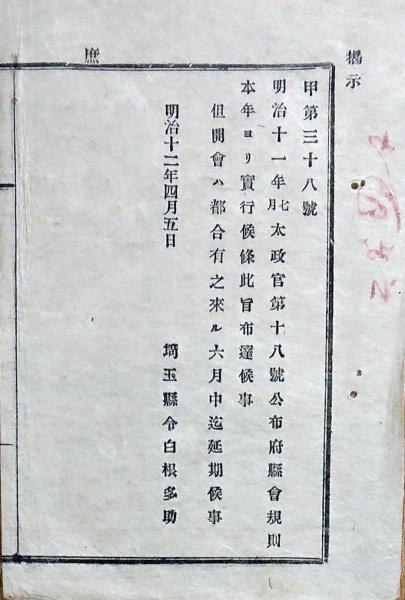 掲示
庶
甲第三十八號
明治十一年七月太政官第十八號公布府縣會規則
本年ヨリ實行候條此旨布達候事
但開會ハ都合有之來ル六月中迄延期候事
明治十二年四月五日
埼玉縣令白根多助